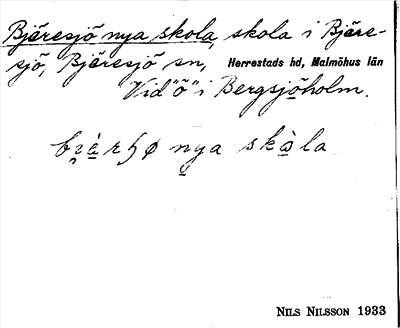 Bjäresjö nya skola, skola i Bjäre-
sjö, Bjäresjö sn, Herrestads hd, Malmöhus län
"Vid" ö" i Bergsjöholm.
nya skòla
NILS NILSSON 1933